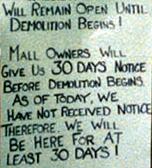 Will Remain Open Until
Demolition Begins!
Mall Owners Will
Give Us 30 Days Notice
Before Demolition Begins.
As of Today, We
Have Not Received Notice
Therefore, We Will
Be Here For At
Least 30 Days!